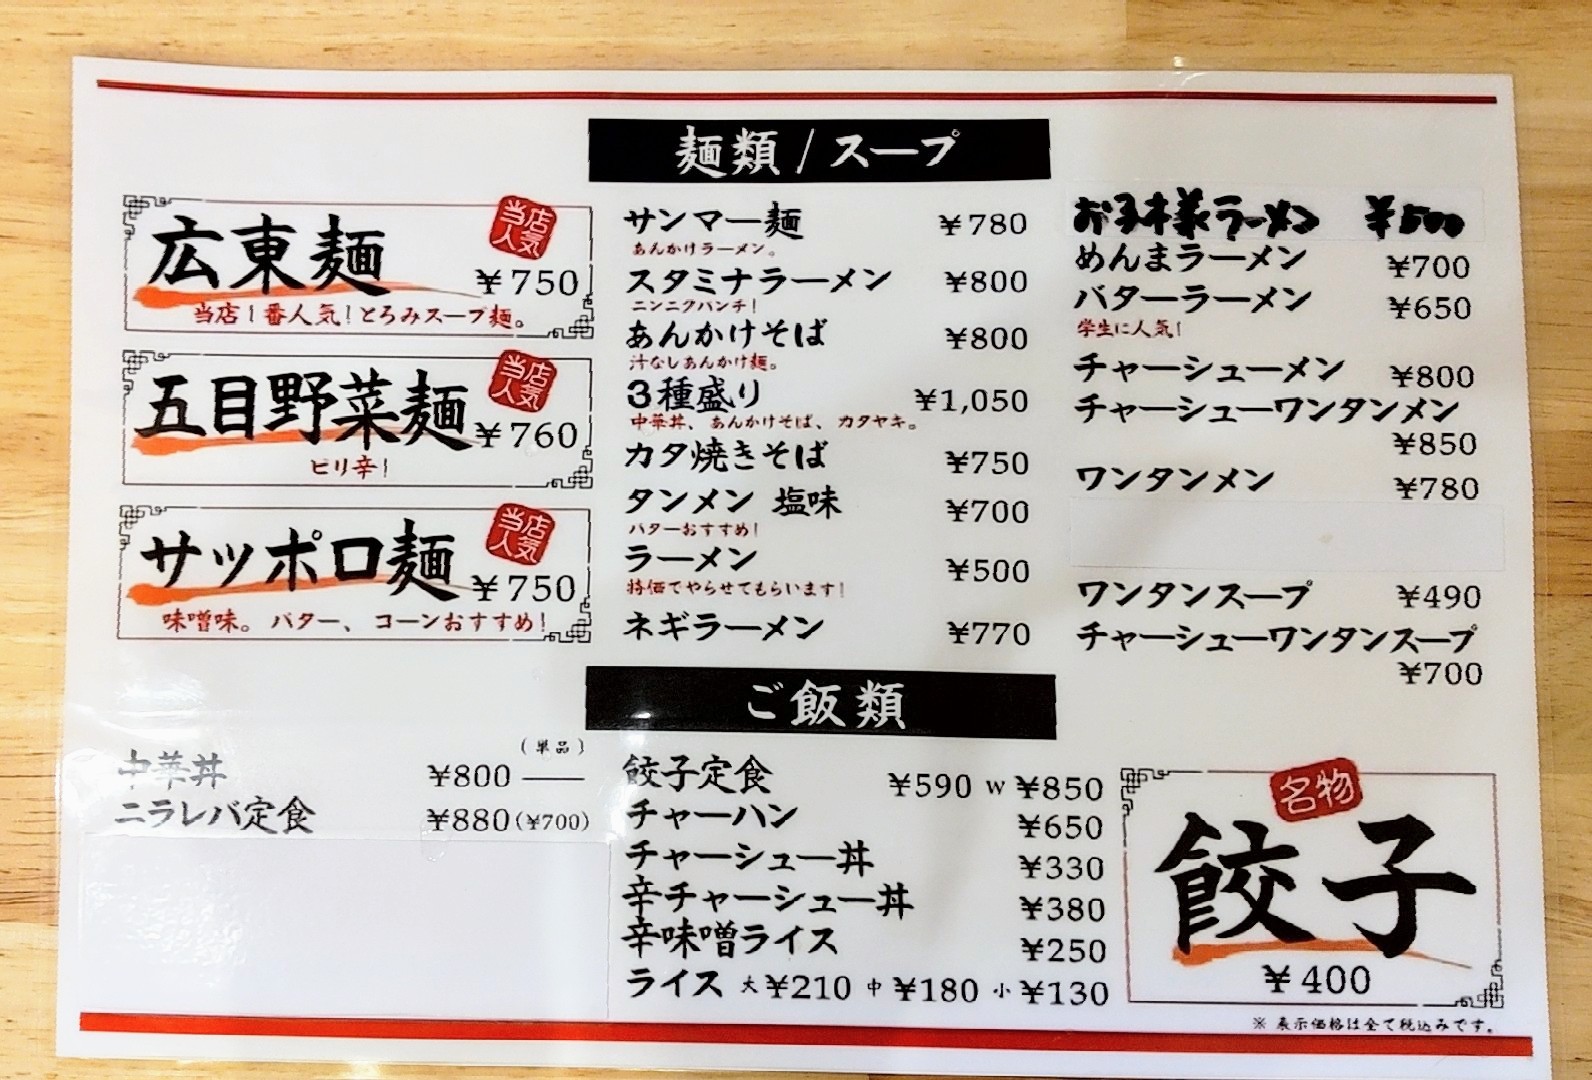 麺類 / スープ
広東麺
当店
人気
¥750
当店1番人気！とろみスープ麺。
五目野菜麺
当店
人気
¥760
ピリ辛！
サッポロ麺
当店
人気
¥750
味噌味。バター、コーンおすすめ！
サンマー麺 ¥780
あんかけラーメン。
スタミナラーメン ¥800
ニンニクパンチ！
あんかけそば ¥800
汁なしあんかけ麺。
3種盛り ¥1,050
中華丼、あんかけそば、カタヤキ。
カタ焼きそば ¥750
タンメン 塩味 ¥700
バターおすすめ！
ラーメン ¥500
特価でやらせてもらいます！
ネギラーメン ¥770
お子様ラーメン ¥500
めんまラーメン ¥700
バターラーメン ¥650
学生に人気！
チャーシューメン ¥800
チャーシューワンタンメン
¥850
ワンタンメン ¥780
ワンタンスープ ¥490
チャーシューワンタンスープ
¥700
ご飯類
(単品)
中華丼 ¥800 ――
ニラレバ定食 ¥880(¥700)
餃子定食 ¥590 W ¥850
チャーハン ¥650
チャーシュー丼 ¥330
辛チャーシュー丼 ¥380
辛味噌ライス ¥250
ライス 大 ¥210 中 ¥180 小 ¥130
名物
餃子
¥400
※ 表示価格は全て税込みです。